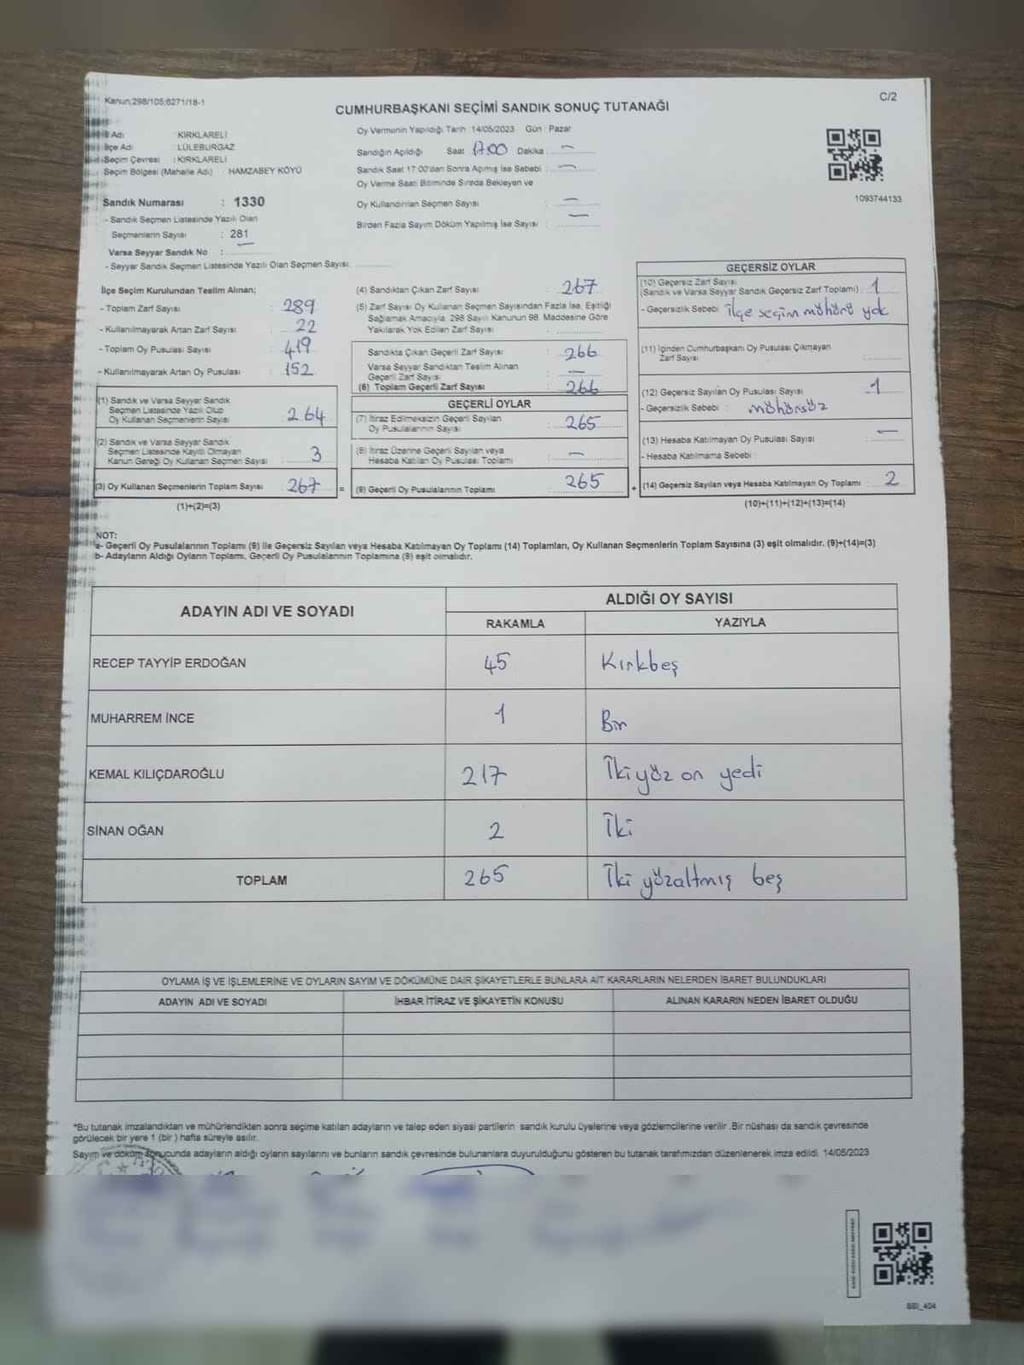 Kanun:298/105;6271/18-1
C/2
CUMHURBAŞKANI SEÇİMİ SANDIK SONUÇ TUTANAĞI
İl Adı : KIRKLARELİ
İlçe Adı : LÜLEBURGAZ
Seçim Çevresi : KIRKLARELİ
Seçim Bölgesi (Mahalle Adı) HAMZABEY KÖYÜ
Oy Vermenin Yapıldığı Tarih 14/05/2023 Gün : Pazar
Sandığın Açıldığı Saat 17:00 Dakika : —
Sandık Saat 17:00'dan Sonra Açılmış İse Sebebi : —
Oy Verme Saati Bitiminde Sırada Bekleyen ve
Oy Kullandırılan Seçmen Sayısı : —
Birden Fazla Sayım Döküm Yapılmış İse Sayısı : —
1093744133
Sandık Numarası : 1330
- Sandık Seçmen Listesinde Yazılı Olan
Seçmenlerin Sayısı : 281
Varsa Seyyar Sandık No : —
- Seyyar Sandık Seçmen Listesinde Yazılı Olan Seçmen Sayısı:
İlçe Seçim Kurulundan Teslim Alınan;
- Toplam Zarf Sayısı : 289
- Kullanılmayarak Artan Zarf Sayısı : 22
- Toplam Oy Pusulası Sayısı : 419
- Kullanılmayarak Artan Oy Pusulası : 152
(1) Sandık ve Varsa Seyyar Sandık
Seçmen Listesinde Yazılı Olup
Oy Kullanan Seçmenlerin Sayısı : 264
(2) Sandık ve Varsa Seyyar Sandık
Seçmen Listesinde Kayıtlı Olmayan
Kanun Gereği Oy Kullanan Seçmen Sayısı : 3
(3) Oy Kullanan Seçmenlerin Toplam Sayısı : 267 =
(1)+(2)=(3)
(4) Sandıktan Çıkan Zarf Sayısı : 267
(5) Zarf Sayısı Oy Kullanan Seçmen Sayısından Fazla İse, Eşitliği
Sağlamak Amacıyla, 298 Sayılı Kanunun 98. Maddesine Göre
Yakılarak Yok Edilen Zarf Sayısı :
Sandıkta Çıkan Geçerli Zarf Sayısı : 266
Varsa Seyyar Sandıktan Teslim Alınan
Geçerli Zarf Sayısı : —
(6) Toplam Geçerli Zarf Sayısı : 266
GEÇERLİ OYLAR
(7) İtiraz Edilmeksizin Geçerli Sayılan
Oy Pusulalarının Sayısı : 265
(8) İtiraz Üzerine Geçerli Sayılan veya
Hesaba Katılan Oy Pusulası Toplamı : —
(9) Geçerli Oy Pusulalarının Toplamı : 265 +
GEÇERSİZ OYLAR
(10) Geçersiz Zarf Sayısı
(Sandık ve Varsa Seyyar Sandık Geçersiz Zarf Toplamı) : 1
- Geçersizlik Sebebi : ilçe seçim mührü yok
(11) İçinden Cumhurbaşkanı Oy Pusulası Çıkmayan
Zarf Sayısı :
(12) Geçersiz Sayılan Oy Pusulası Sayısı : 1
- Geçersizlik Sebebi : mühürsüz
(13) Hesaba Katılmayan Oy Pusulası Sayısı : —
- Hesaba Katılmama Sebebi :
(14) Geçersiz Sayılan veya Hesaba Katılmayan Oy Toplamı : 2
(10)+(11)+(12)+(13)=(14)
NOT:
a- Geçerli Oy Pusulalarının Toplamı (9) ile Geçersiz Sayılan veya Hesaba Katılmayan Oy Toplamı (14) Toplamları, Oy Kullanan Seçmenlerin Toplam Sayısına (3) eşit olmalıdır. (9)+(14)=(3)
b- Adayların Aldığı Oyların Toplamı, Geçerli Oy Pusulalarının Toplamına (9) eşit olmalıdır.
ADAYIN ADI VE SOYADI
ALDIĞI OY SAYISI
RAKAMLA YAZIYLA
RECEP TAYYİP ERDOĞAN 45 Kırkbeş
MUHARREM İNCE 1 Bir
KEMAL KILIÇDAROĞLU 217 İkiyüz on yedi
SİNAN OĞAN 2 İki
TOPLAM 265 İki yüzaltmış beş
OYLAMA İŞ VE İŞLEMLERİNE VE OYLARIN SAYIM VE DÖKÜMÜNE DAİR ŞİKAYETLERLE BUNLARA AİT KARARLARIN NELERDEN İBARET BULUNDUKLARI
ADAYIN ADI VE SOYADI İHBAR İTİRAZ VE ŞİKAYETİN KONUSU ALINAN KARARIN NEDEN İBARET OLDUĞU
*Bu tutanak imzalandıktan ve mühürlendikten sonra seçime katılan adayların ve talep eden siyasi partilerin sandık kurulu üyelerine veya gözlemcilerine verilir .Bir nüshası da sandık çevresinde
görülecek bir yere 1 (bir ) hafta süreyle asılır.
Sayım ve döküm sonucunda adayların aldığı oyların sayılarını ve bunların sandık çevresinde bulunanlara duyurulduğunu gösteren bu tutanak tarafımızdan düzenlenerek imza edildi. 14/05/2023
SSI_404